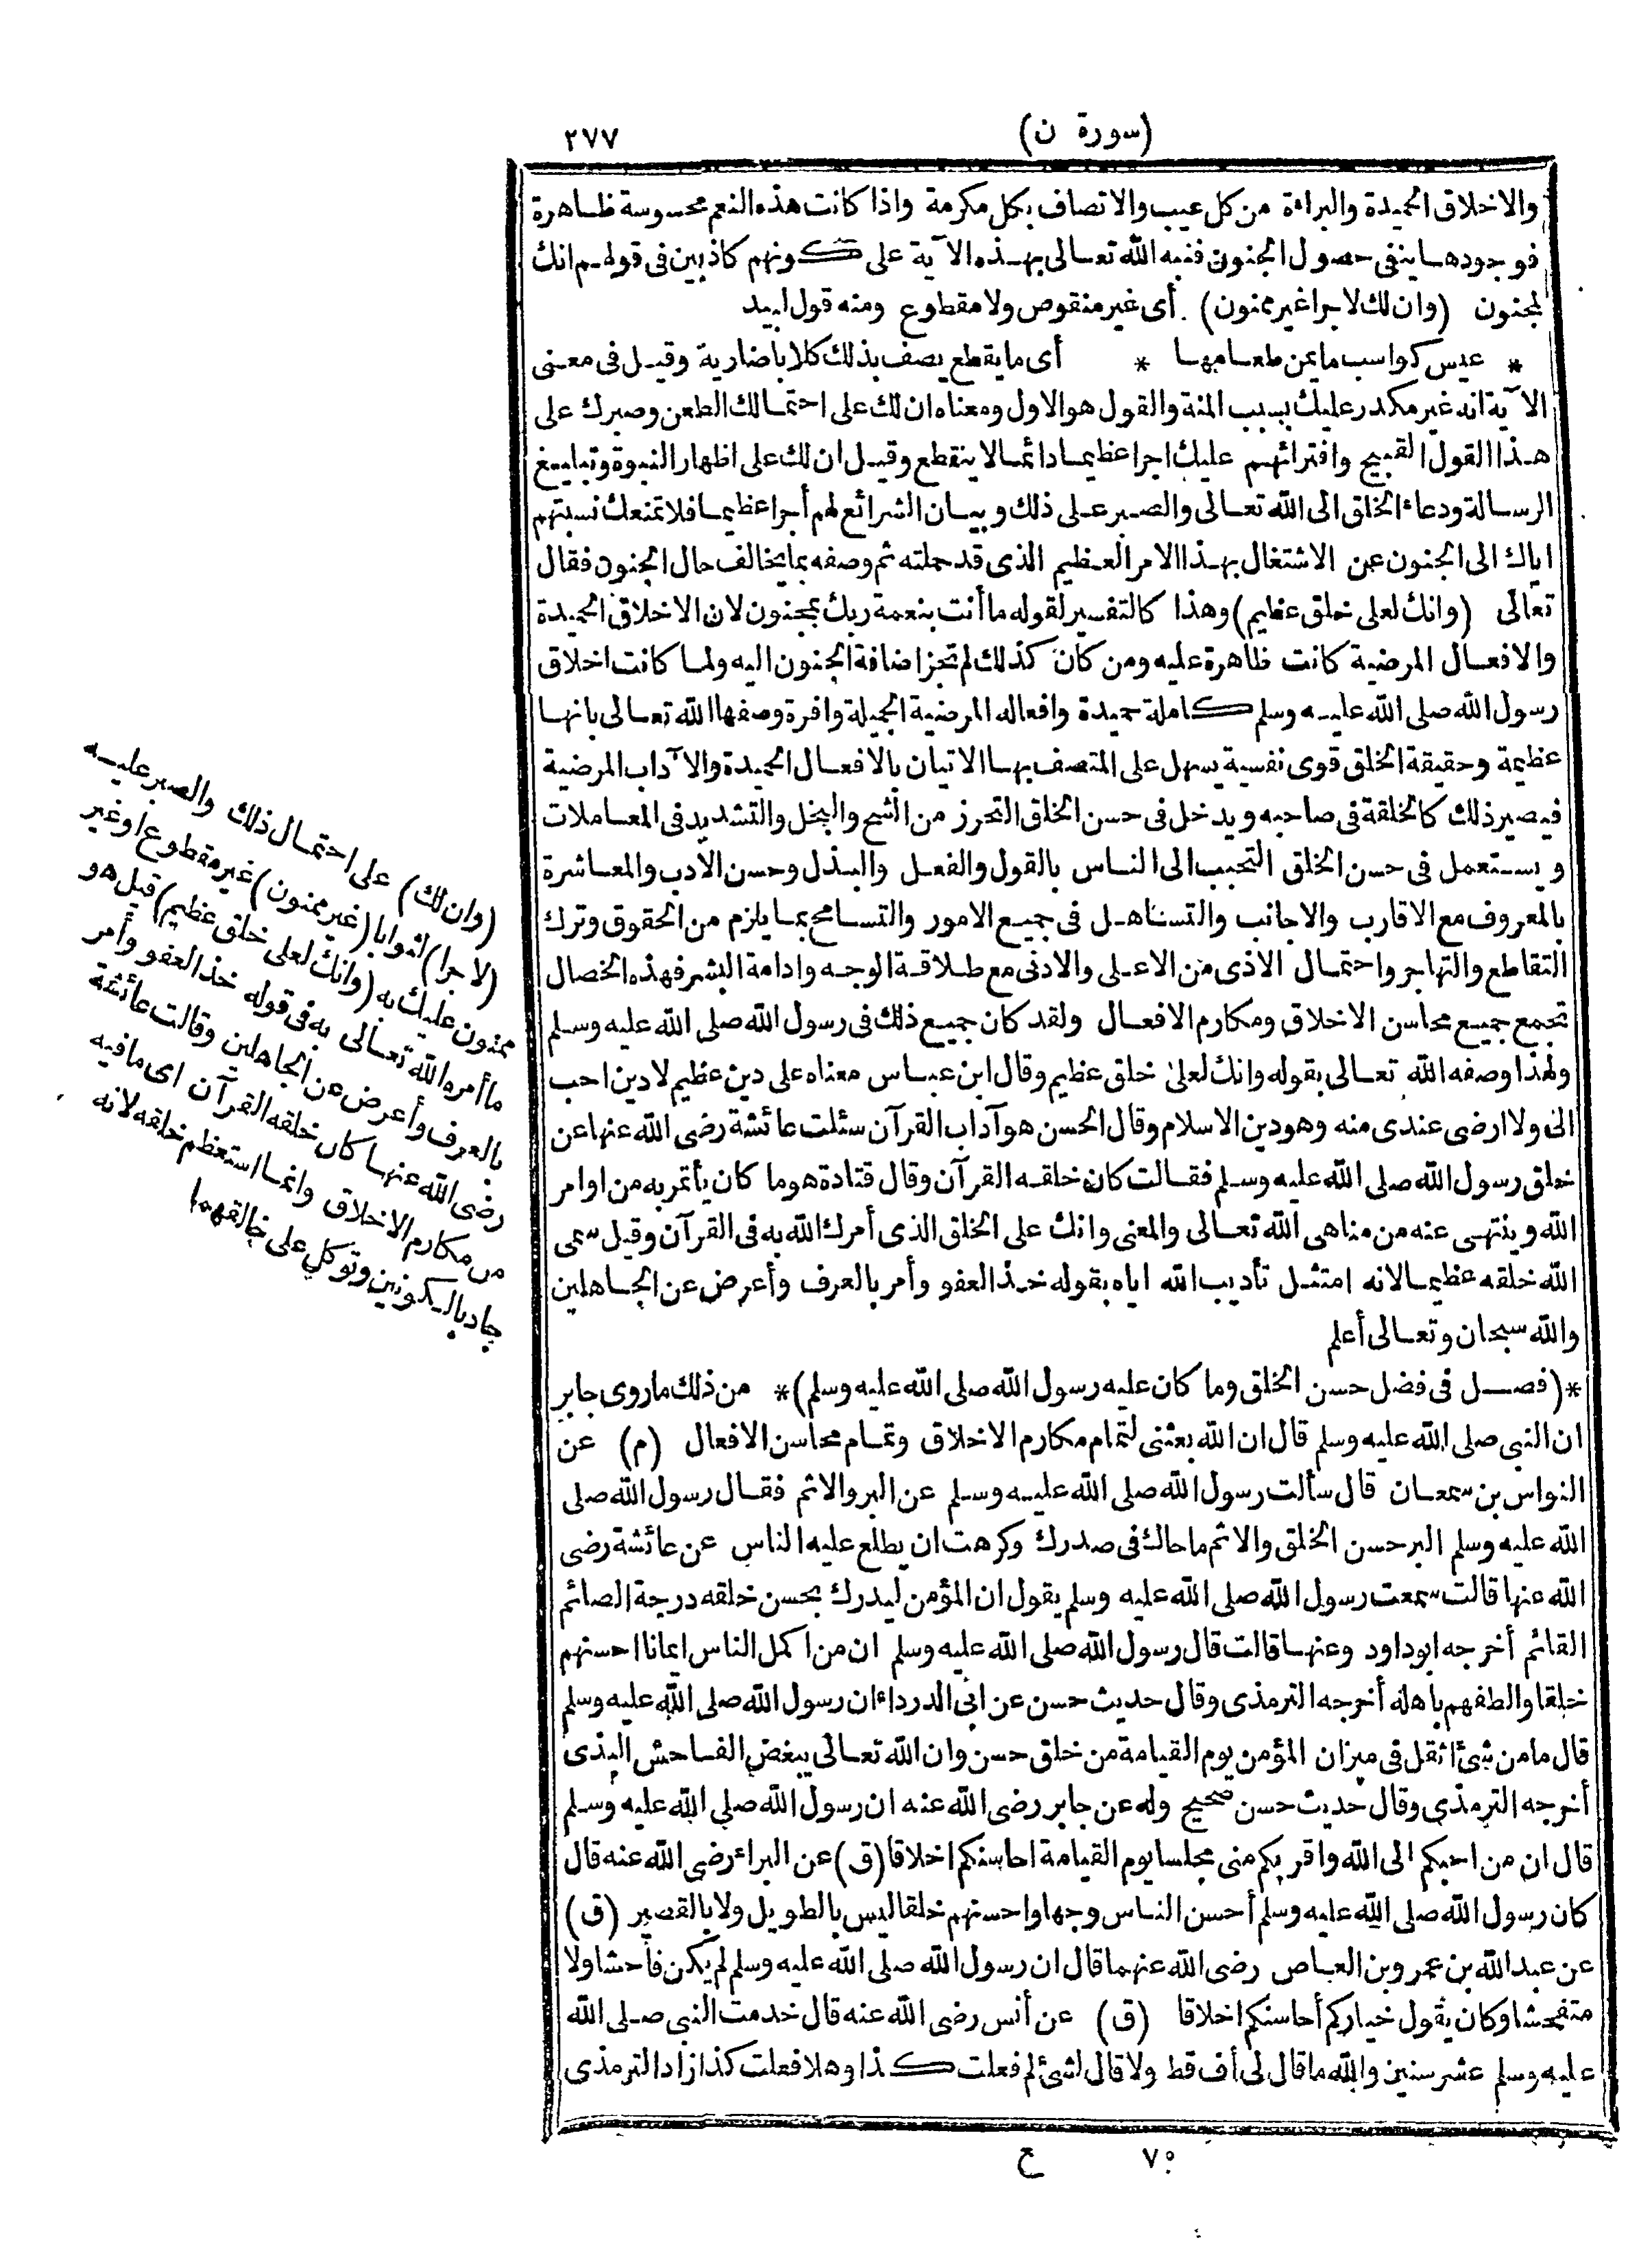 (سورة ن) ٢٧٧
والاخلاق الحميدة والبراءة من كل عيب والاتصاف بكل مكرمة واذا كانت هذه النعم محسوسة ظاهرة
فوجودها ينفى حصول الجنون فنبه الله تعالى بهذه الآية على كونهم كاذبين فى قولهم انك
لمجنون (وان لك لاجرا غير ممنون) أى غير منقوص ولا مقطوع ومنه قول لبيد
* عبس كواسب ما يمن طعامها * أى ما يقطع يصف بذلك كلابا ضارية وقيل فى معنى
الآية انه غير مكدر عليك بسبب المنة والقول هو الاول ومعناه ان لك على احتمالك الطعن وصبرك على
هذا القول القبيح وافترائهم عليك اجرا عظيما دائما لا ينقطع وقيل ان لك على اظهار النبوة وتبليغ
الرسالة ودعاء الخلق الى الله تعالى والصبر على ذلك وبيان الشرائع لهم أجرا عظيما فلا تمنعك نسبتهم
اياك الى الجنون عن الاشتغال بهذا الامر العظيم الذى قد حملته ثم وصفه بما يخالف حال الجنون فقال
تعالى (وانك لعلى خلق عظيم) وهذا كالتفسير لقوله ما أنت بنعمة ربك بمجنون لان الاخلاق الحميدة
والافعال المرضية كانت ظاهرة عليه ومن كان كذلك لم تجز اضافة الجنون اليه ولما كانت اخلاق
رسول الله صلى الله عليه وسلم كاملة حميدة وافعاله المرضية الجميلة وافرة وصفها الله تعالى بانها
عظيمة وحقيقة الخلق قوى نفسية يسهل على المتصف بها الاتيان بالافعال الحميدة والآداب المرضية
فيصير ذلك كالخلقة فى صاحبه ويدخل فى حسن الخلق التحرز من الشح والبخل والتشديد فى المعاملات
ويستعمل فى حسن الخلق التحبب الى الناس بالقول والفعل والبذل وحسن الادب والمعاشرة
بالمعروف مع الاقارب والاجانب والتساهل فى جميع الامور والتسامح بما يلزم من الحقوق وترك
التقاطع والتهاجر واحتمال الاذى من الاعلى والادنى مع طلاقة الوجه وادامة البشر فهذه الخصال
تجمع جميع محاسن الاخلاق ومكارم الافعال ولقد كان جميع ذلك فى رسول الله صلى الله عليه وسلم
ولهذا وصفه الله تعالى بقوله وانك لعلى خلق عظيم وقال ابن عباس معناه على دين عظيم لا دين احب
الى ولا ارضى عندى منه وهو دين الاسلام وقال الحسن هو آداب القرآن سئلت عائشة رضى الله عنها عن
خلق رسول الله صلى الله عليه وسلم فقالت كان خلقه القرآن وقال قتادة هو ما كان يأتمر به من اوامر
الله وينتهى عنه من مناهى الله تعالى والمعنى وانك على الخلق الذى أمرك الله به فى القرآن وقيل سمى
الله خلقه عظيما لانه امتثل تأديب الله اياه بقوله خذ العفو وأمر بالعرف وأعرض عن الجاهلين
والله سبحان وتعالى أعلم
*(فصل فى فضل حسن الخلق وما كان عليه رسول الله صلى الله عليه وسلم)* من ذلك ما روى جابر
ان النبى صلى الله عليه وسلم قال ان الله بعثنى لتمام مكارم الاخلاق وتمام محاسن الافعال (م) عن
النواس بن سمعان قال سألت رسول الله صلى الله عليه وسلم عن البر والاثم فقال رسول الله صلى
الله عليه وسلم البر حسن الخلق والاثم ما حاك فى صدرك وكرهت ان يطلع عليه الناس عن عائشة رضى
الله عنها قالت سمعت رسول الله صلى الله عليه وسلم يقول ان المؤمن ليدرك بحسن خلقه درجة الصائم
القائم أخرجه ابو داود وعنها قالت قال رسول الله صلى الله عليه وسلم ان من اكمل الناس ايمانا احسنهم
خلقا والطفهم باهله أخرجه الترمذى وقال حديث حسن عن ابى الدرداء ان رسول الله صلى الله عليه وسلم
قال ما من شئ اثقل فى ميزان المؤمن يوم القيامة من خلق حسن وان الله تعالى يبغض الفاحش البذى
أخرجه الترمذى وقال حديث حسن صحيح وله عن جابر رضى الله عنه ان رسول الله صلى الله عليه وسلم
قال ان من احبكم الى الله واقربكم منى مجلسا يوم القيامة احاسنكم اخلاقا (ق) عن البراء رضى الله عنه قال
كان رسول الله صلى الله عليه وسلم أحسن الناس وجها واحسنهم خلقا ليس بالطويل ولا بالقصير (ق)
عن عبد الله بن عمرو بن العاص رضى الله عنهما قال ان رسول الله صلى الله عليه وسلم لم يكن فاحشا ولا
متفحشا وكان يقول خياركم أحاسنكم اخلاقا (ق) عن أنس رضى الله عنه قال خدمت النبى صلى الله
عليه وسلم عشر سنين والله ما قال لى أف قط ولا قال لشئ لم فعلت كذا وهلا فعلت كذا زاد الترمذى
(وان لك) على احتمال ذلك والصبر عليه
(لاجرا) لثوابا (غير ممنون) غير مقطوع او غير
ممنون عليك به (وانك لعلى خلق عظيم) قيل هو
ما أمره الله تعالى به فى قوله خذ العفو وأمر
بالعرف وأعرض عن الجاهلين وقالت عائشة
رضى الله عنها كان خلقه القرآن اى ما فيه
من مكارم الاخلاق وانما استعظم خلقه لانه
جاد بالكونين وتوكل على خالقهما
٧٥ ح